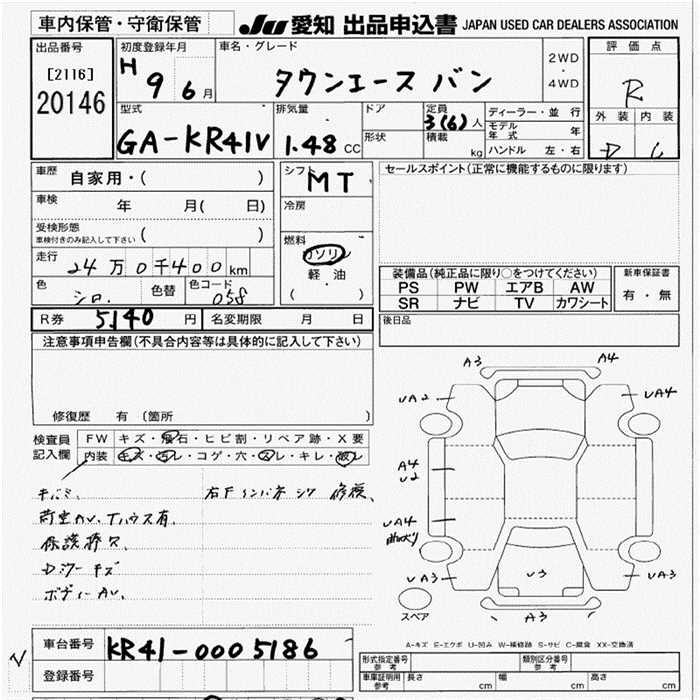 車内保管・守衛保管
JU 愛知 出品申込書 JAPAN USED CAR DEALERS ASSOCIATION
出品番号
[2116]
20146
初度登録年月
H 9 6月
車名・グレード
タウンエース バン
2WD
・
4WD
評価点
R
外装 内装
D
型式
GA-KR41V
排気量
1.48 CC
ドア
形状
定員
3(6)人
積載
kg
ディーラー・並行
モデル年式 年
ハンドル 左・右
車歴 自家用・( )
車検 年 月( 日)
受検形態
車検付きのみ記入して下さい ( )
走行 24万0千400km
色 シロ. 色替 色コード 058
シフト MT
冷房
燃料
ガソリン
軽油
( ・ )
セールスポイント(正常に機能するものに限ります)
装備品(純正品に限り○をつけてください)
PS PW エアB AW
SR ナビ TV カワシート
新車保証書
有・無
R券 5140 円 名変期限 月 日
後日品
注意事項申告欄(不具合内容等は具体的に記入して下さい)
修復歴 有 〔箇所 〕
検査員記入欄
FW キズ・飛石・ヒビ割・リペア跡・X要
内装 キズ・汚レ・コゲ・穴・スレ・キレ・破レ
キバミ、
右Fインパネ 修復、
荷室AV、
ボディーAV、
A3 A4
UA2 UA4
A4
U2
UA4
UA3 U3 UA3
A3
スペア
A-キズ E-エクボ U-凹み W-補修跡 S-サビ C-腐食 XX-交換済
車台番号 KR41-0005186
登録番号
形式指定番号 参考
類別区分番号 参考
車庫証明用 参考 長さ cm 幅 cm 高さ cm